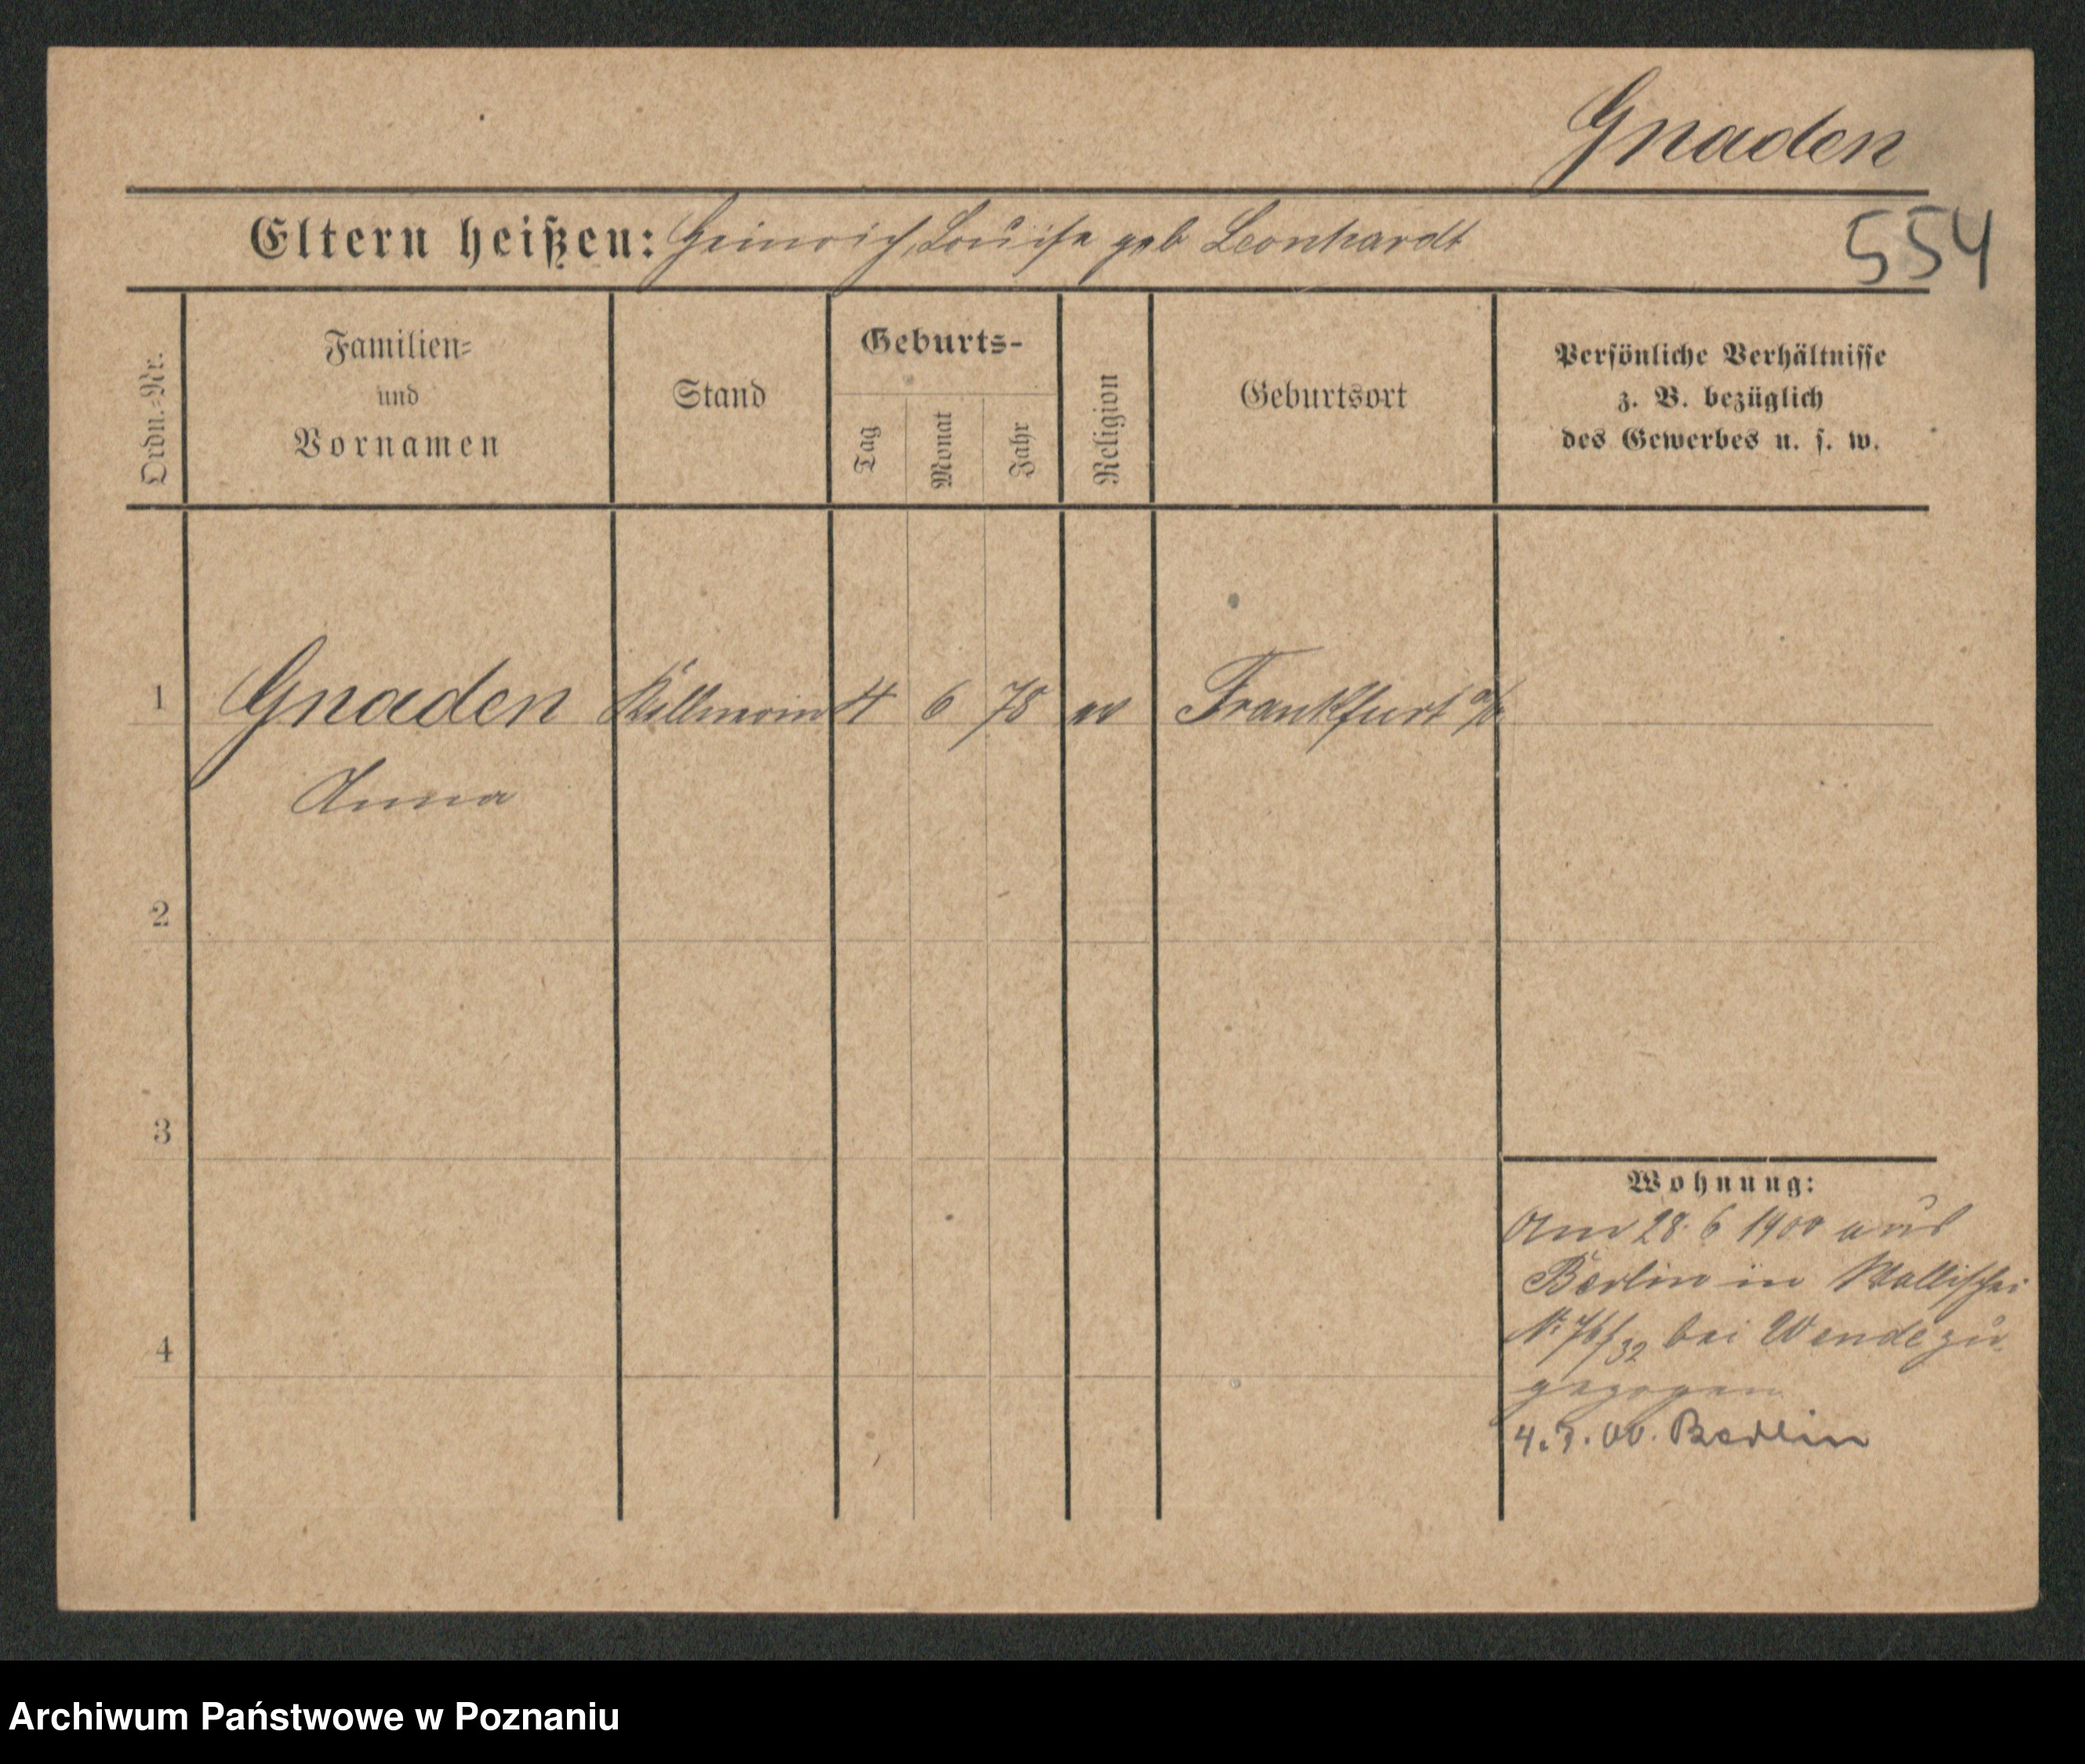 Gnaden
Eltern heißen: Heinrich, Louise geb Leonhardt
554
Ordn.-Nr.
Familien-
und
Vornamen
Stand
Geburts-
Tag
Monat
Jahr
Religion
Geburtsort
Persönliche Verhältnisse
z. B. bezüglich
des Gewerbes u. s. w.
1 Gnaden Kellnerin 4 6 78 ev Frankfurt a/O
Anna
2
3
4
Wohnung:
Am 28. 6 1900 aus
Berlin in Wallischei
No 76/32 bei Wende zu
gezogen
4. 7. 00. Berlin
Archiwum Państwowe w Poznaniu